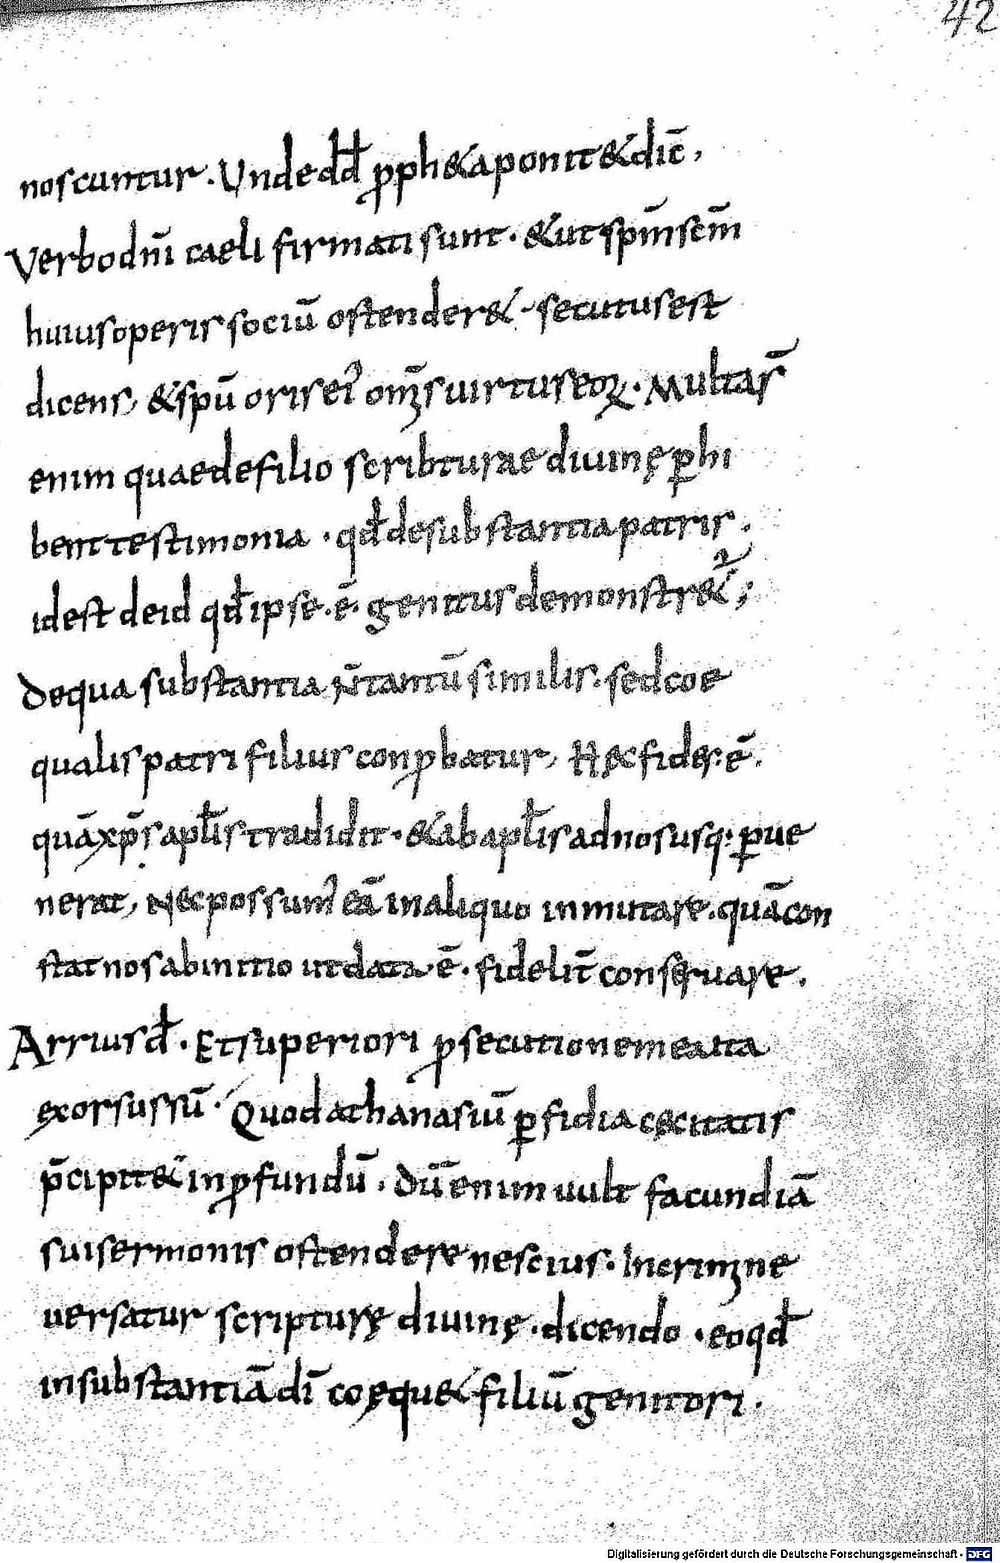 42
noscuntur. Unde dd̄ ꝓph&a ponit & dic̄,
Verbo dn̄i caeli firmati sunt. & ut spm̄ scm̄
huius operis sociū ostender&. secutus est
dicens, & spū oris ei' om̄s uirtus eoꝝ. Multa s̄
enim quae de filio scribturae diuinę ꝑhi
bent testimonia. qđ de substantia patris.
id est de id qđ ipse. ē. genitus demonstr&ur;
De qua substantia n̄ tantū similis. sed coe
qualis patri filius conꝓbatur, Hęc fides. ē.
quā xp̄s apłis tradidit. & ab apłis ad nos usq. ꝑue
nerat, Nec possum' eā in aliquo inmutare. quā con
stat nos ab initio ut data ē. fidelit̄ conseruare.
Arrius đ. Et superiori ꝓsecutione mea ita
exorsus sū. Quod athanasiū ꝑfidia cęcitatis
p̄cipit& in ꝓfundū. dū enim uult facundiā
sui sermonis ostendere nescius. In crimine
uersatur scripturę diuinę. dicendo. eo qđ
in substantiā dī coęqu& filiū genitori.
Digitalisierung gefördert durch die Deutsche Forschungsgemeinschaft - DFG